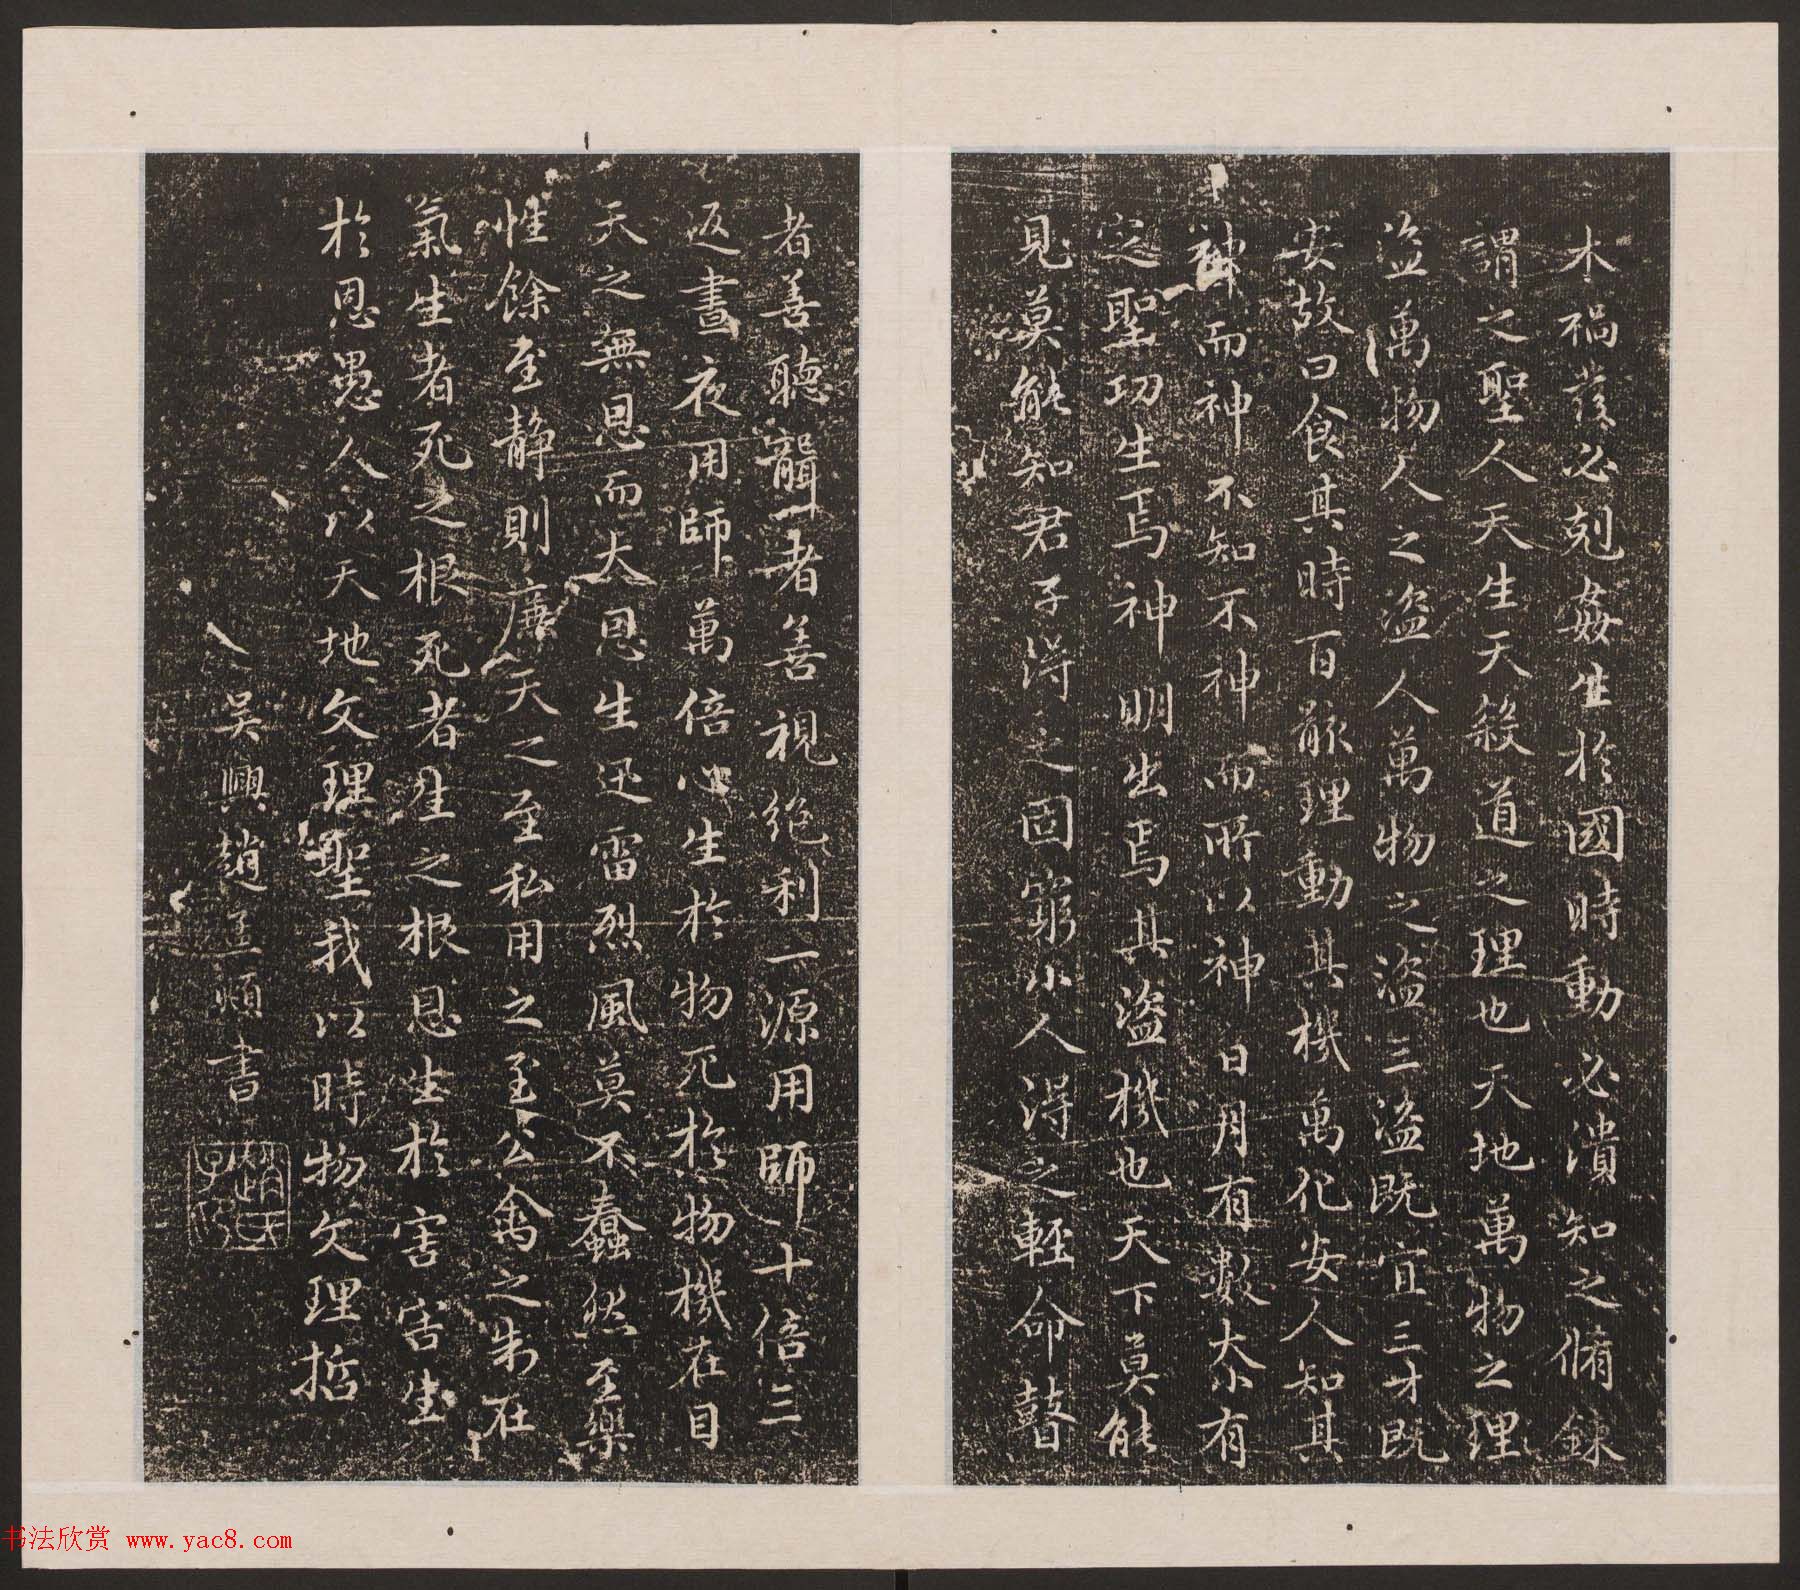 木禍發必剋姦生於國時動必潰知之脩鍊
謂之聖人天生天殺道之理也天地萬物之理
盜萬物人之盜人萬物之盜三盜既宜三才既
安故曰食其時百骸理動其機萬化安人知其
神而神不知不神而所以神日月有數大小有
定聖功生焉神明出焉其盜機也天下莫能
見莫能知君子得之固窮小人得之輕命瞽
者善聽聾者善視絕利一源用師十倍三
返晝夜用師萬倍心生於物死於物機在目
天之無恩而大恩生迅雷烈風莫不蠢然至樂
性餘至靜則廉天之至私用之至公禽之制在
氣生者死之根死者生之根恩生於害害生
於恩愚人以天地文理聖我以時物文理哲
吳興趙孟頫書
趙氏子昂
书法欣赏 www.yac8.com